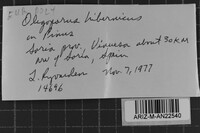 Oligoporus hibernicus
on Pinus
Soria prov. Vinuesa about 30 KM
NW of Soria, Spain
L. Ryvarden Nov. 7, 1977
14696
ARIZ-M-AN22540